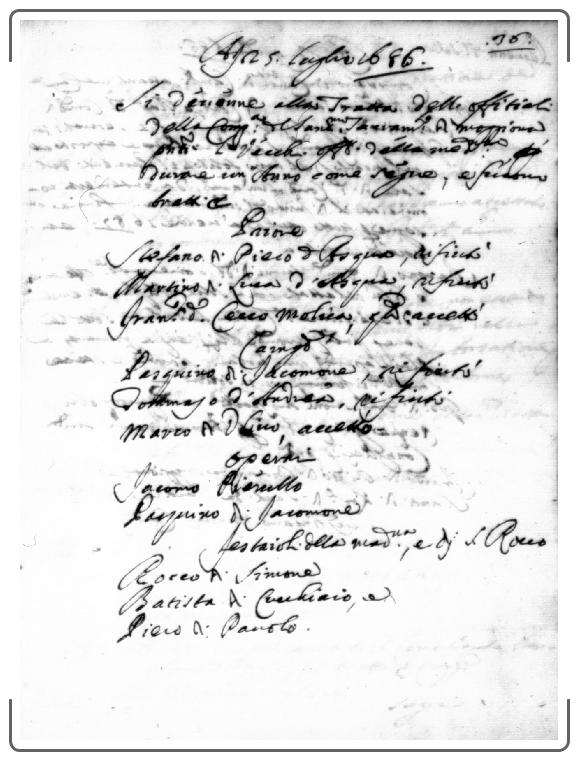 .36.
A di 5 luglio 1686.
Si devenne alla Tratta delli offitiali
della Comp.ª del Sant.mo Sacram.to di
li Vecchi off.li della
durare un Anno come segue, e furono
tratti
Priore
Stefano di Piero d' Acqua, rifiutò
Martino di Luca d' Acqua, rifiutò
Fran.co di Cecco Molica, accettò
Camg.o
Pasquino di Jacomone, rifiutò
Tommaso d'Andrea, rifiutò
Marco di accettò
operai
Jacomo Pierullo
Pasquino di Jacomone
Festaioli della mad.na, e di S. Rocco
Rocco di Simone
Batista di Cucchiaio, e
Piero di Pauolo.